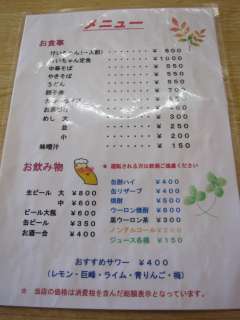 メニュー
お食事
けいちゃん(一人前) ¥600
けいちゃん定食 ¥1000
中華そば ¥550
やきそば ¥550
うどん ¥550
¥700
¥350
お茶づけ ¥350
めし 大 ¥250
並 ¥200
中 ¥150
味噌汁 ¥150
お飲み物
※ 運転される方は飲酒ご遠慮ください
生ビール 大 ¥800
中 ¥600
ビール大瓶 ¥600
缶ビール ¥350
お酒一合 ¥400
缶酎ハイ ¥400
缶リザーブ ¥400
焼酎 ¥350
ウーロン焼酎 ¥400
黒ウーロン茶 ¥300
ノンアルコール ¥300
ジュース各種 ¥150
おすすめサワー ¥400
(レモン・巨峰・ライム・青りんご・梅)
※ 当店の価格は消費税を含んだ総額表示となっています。